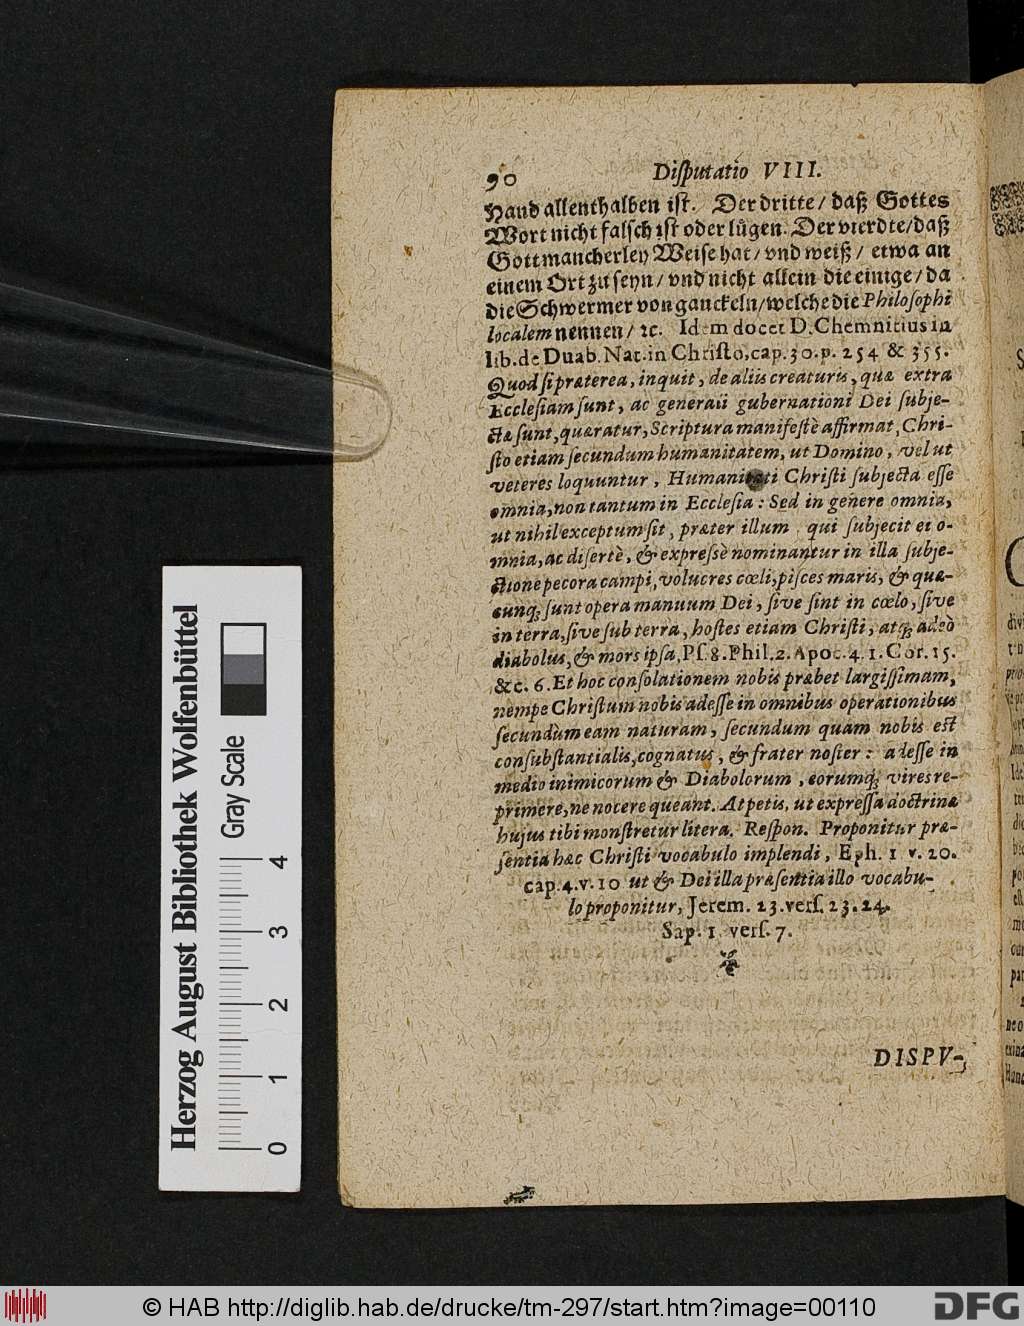 90 Disputatio VIII.
Hand allenthalben ist. Der dritte / daß Gottes
Wort nicht falsch ist oder lügen. Der vierdte / daß
Gott mancherley Weise hat / vnd weiß / etwa an
einem Ort zu seyn / vnd nicht allein die einige / da
die Schwermer von ganckeln / welche die Philosophi
localem nennen / ꝛc. Idem docet D. Chemnitius in
lib. de Duab. Nat. in Christo, cap. 30. p. 254 & 355.
Quod si præterea, inquit, de aliis creaturis, quæ extra
Ecclesiam sunt, ac generali gubernationi Dei subje-
ctæ sunt, quæratur, Scriptura manifestè affirmat, Chri-
sto etiam secundum humanitatem, ut Domino, vel ut
veteres loquuntur, Humanitati Christi subjecta esse
omnia, non tantum in Ecclesia: Sed in genere omnia,
ut nihil exceptum sit, præter illum qui subjecit ei o-
mnia, ac disertè, & expressè nominantur in illa subje-
ctione pecora campi, volucres cœli, pisces maris, & quæ-
cunq; sunt opera manuum Dei, sive sint in cœlo, sive
in terra, sive sub terra, hostes etiam Christi, atq; adeò
diabolus, & mors ipsa, Ps. 8. Phil. 2. Apoc. 4. 1. Cor. 15.
&c. 6. Et hoc consolationem nobis præbet largissimam,
nempe Christum nobis adesse in omnibus operationibus
secundùm eam naturam, secundum quam nobis est
consubstantialis, cognatus, & frater noster: adesse in
medio inimicorum & Diabolorum, eorumq; vires re-
primere, ne nocere queant. At petis, ut expressa doctrinæ
hujus tibi monstretur litera. Respon. Proponitur præ-
sentia hæc Christi vocabulo implendi, Eph. 1 v. 20.
cap. 4. v. 10 ut & Dei illa præsentia illo vocabu-
lo proponitur, Jerem. 23. vers. 23. 24.
Sap. 1. vers. 7.
DISPV-
Herzog August Bibliothek Wolfenbüttel
Gray Scale
0 1 2 3 4
© HAB http://diglib.hab.de/drucke/tm-297/start.htm?image=00110
DFG